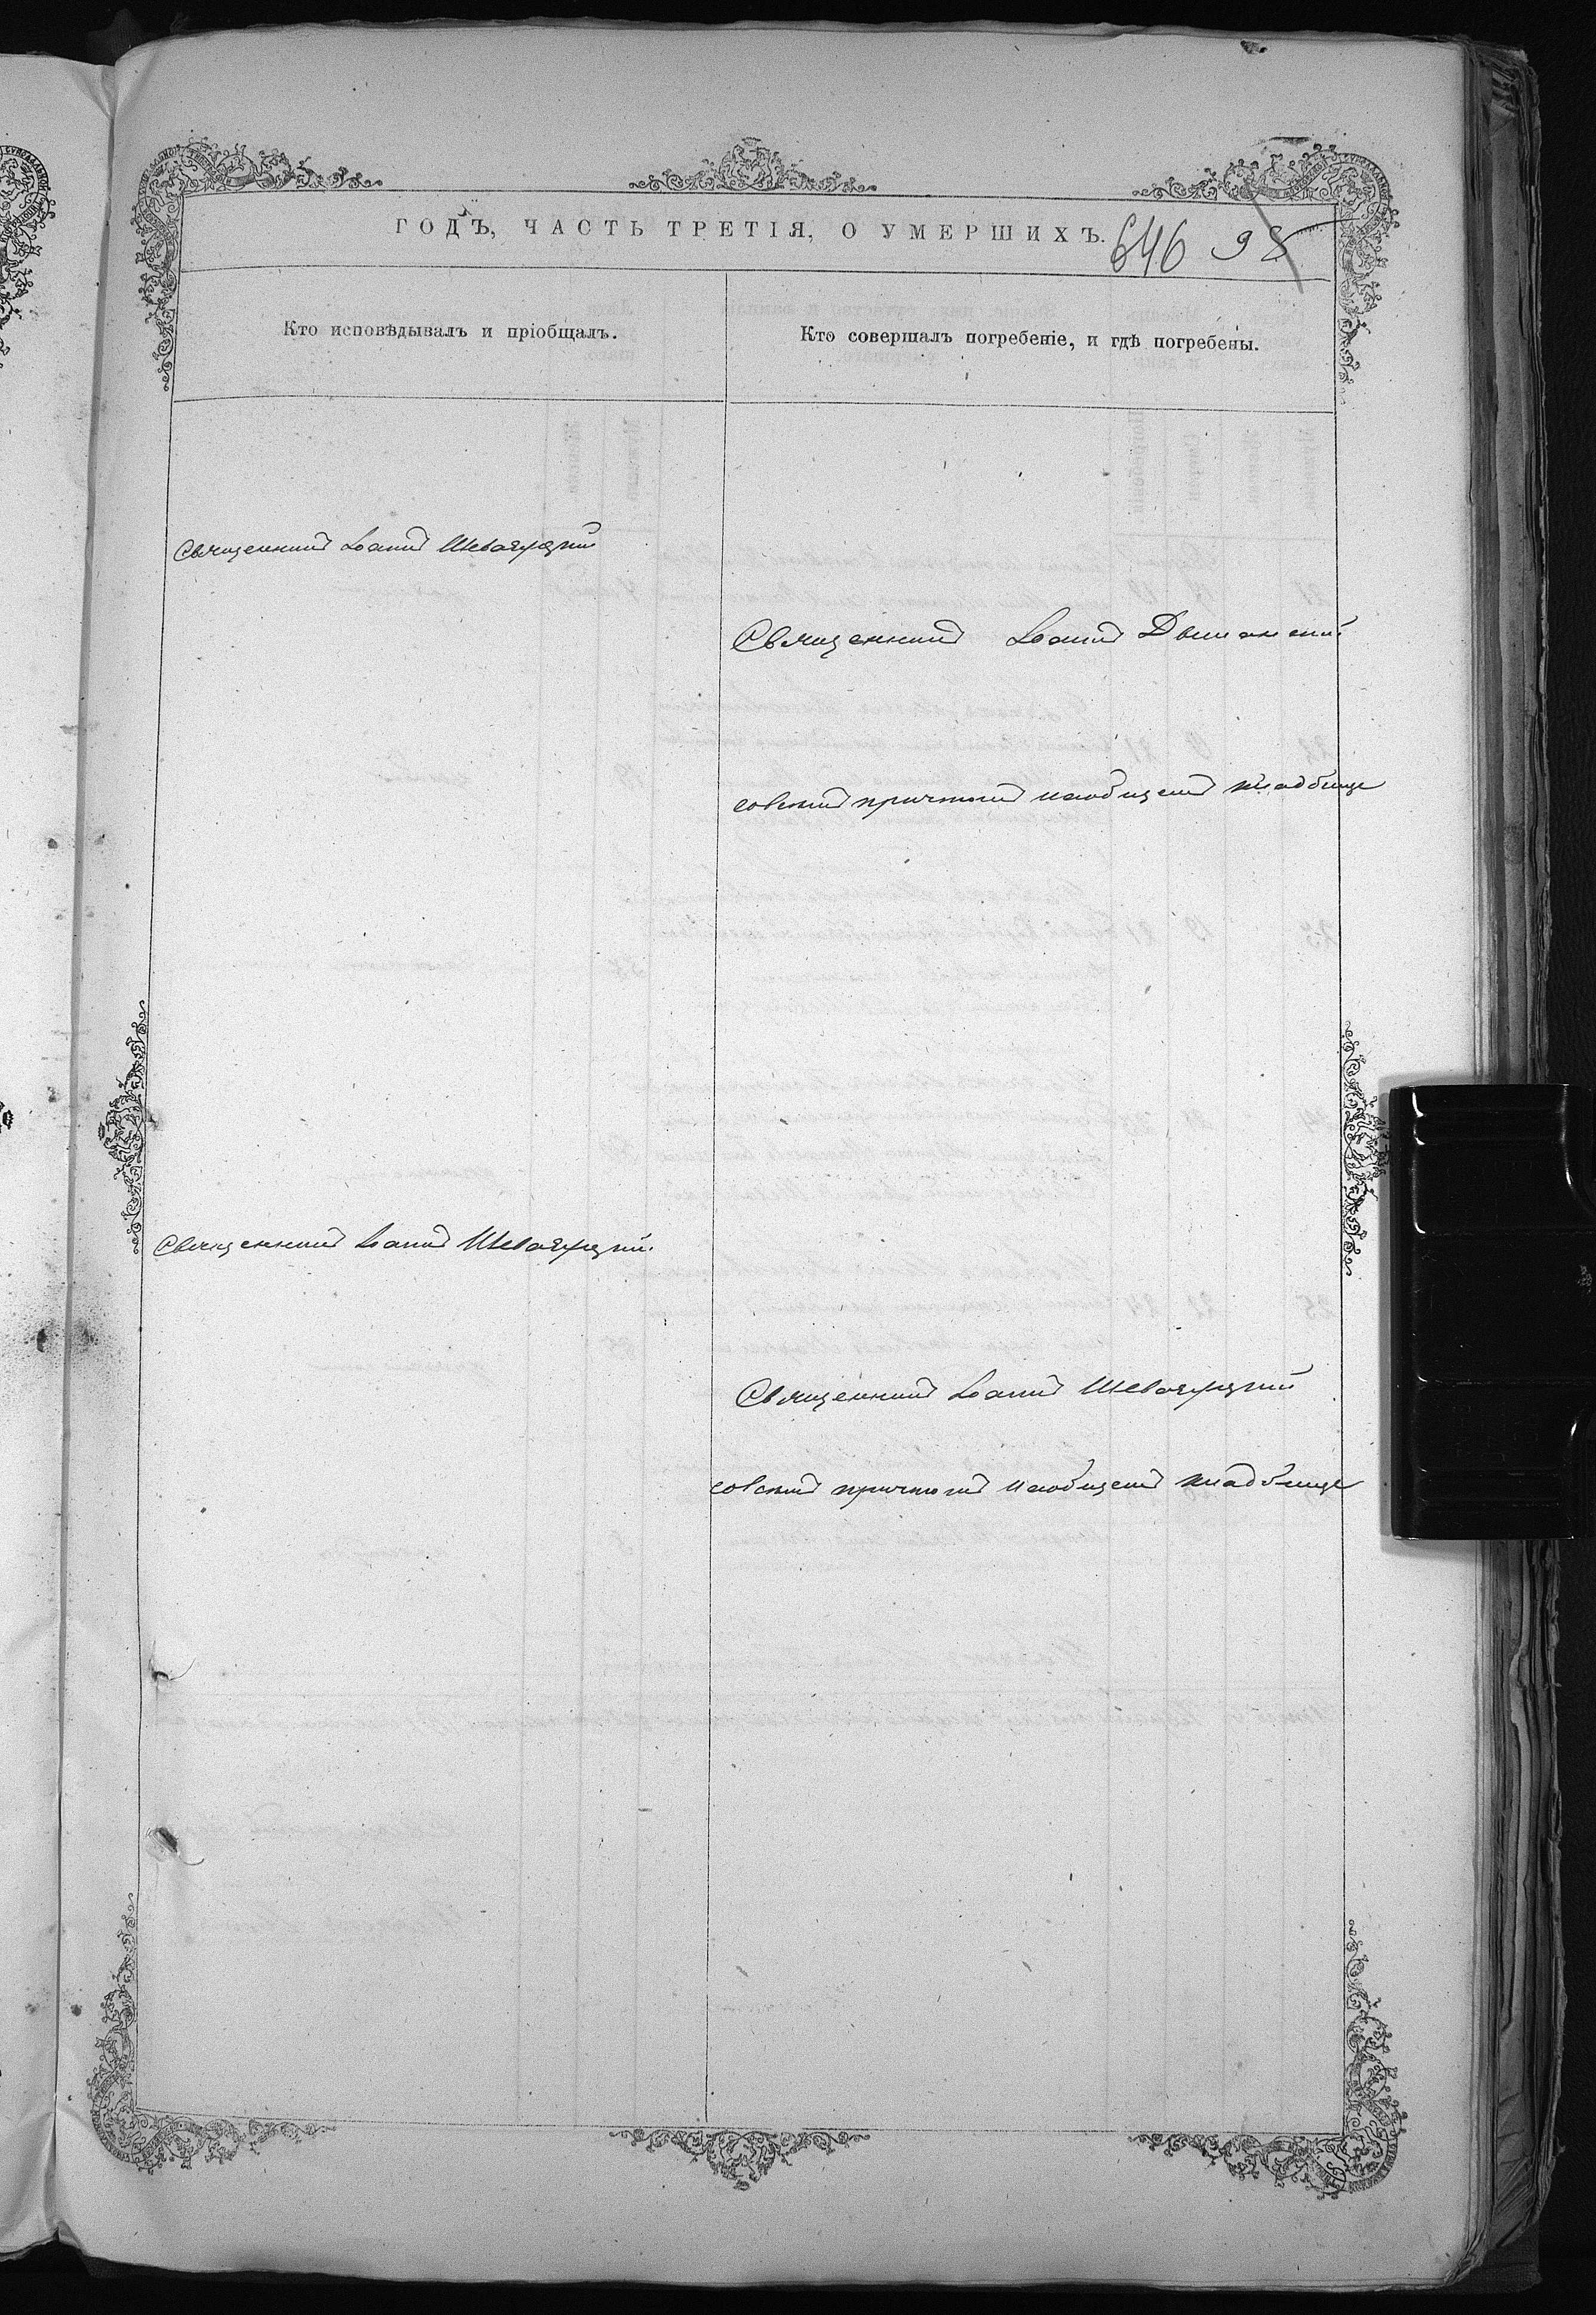 ГОДЪ, ЧАСТЬ ТРЕТІЯ, О УМЕРШИХЪ.
646 98
Кто исповѣдывалъ и пріобщалъ.
Кто совершалъ погребеніе, и гдѣ погребены.
Священникъ Іоаннъ
Священникъ Іоаннъ
совский причтомъ наобщемъ кладбище
Священникъ Іоаннъ
Священникъ Іоаннъ
совский причтомъ наобщемъ кладбище